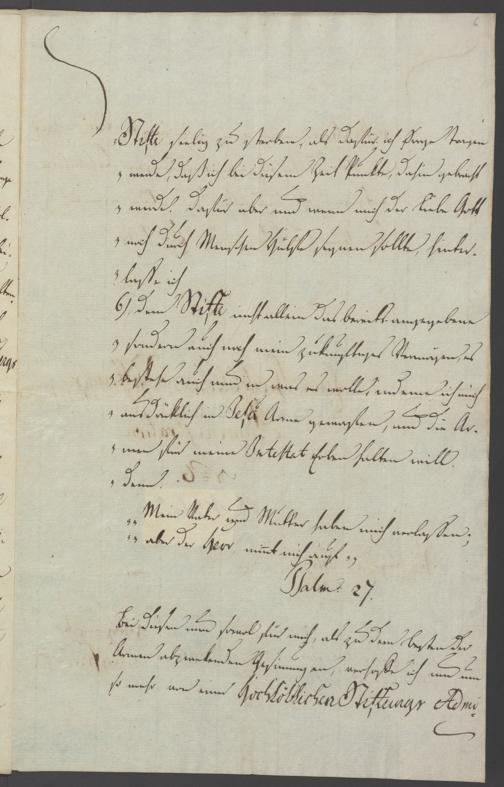 6
„Stifte seelig zu sterben, als dafür ich Sorge tragen
„ werde, daß ich bei diesem Zeit Punkte, dahin gebracht
„ werde. Dafür aber und wenn mich der liebe Gott
„ noch durch Menschen Hülfe segnen sollte, hinter-
„ lasse ich
6) dem Stifte nicht allein das bereits angegebene
„ sondern auch noch mein zukünftiges Vermögen, es
„ bestehe auch nun in, was es wolle, indeme ich mich
„ ausdrücklich in Jesu Arme geworfen, und die Ar-
„ men für meine Intestat Erben halten will.
„ Denn.
„„ Mein Vater und Mutter haben mich verlassen;
„„ aber der Herr nimmt mich auf „„
Psalm. 27.
Bei diesen nun sowol für mich, als zu dem besten der
Armen abzweckenden Gesinnungen, verhoffe ich nun um
so mehr von einer Hochlöblichen Stiftungs Admi-